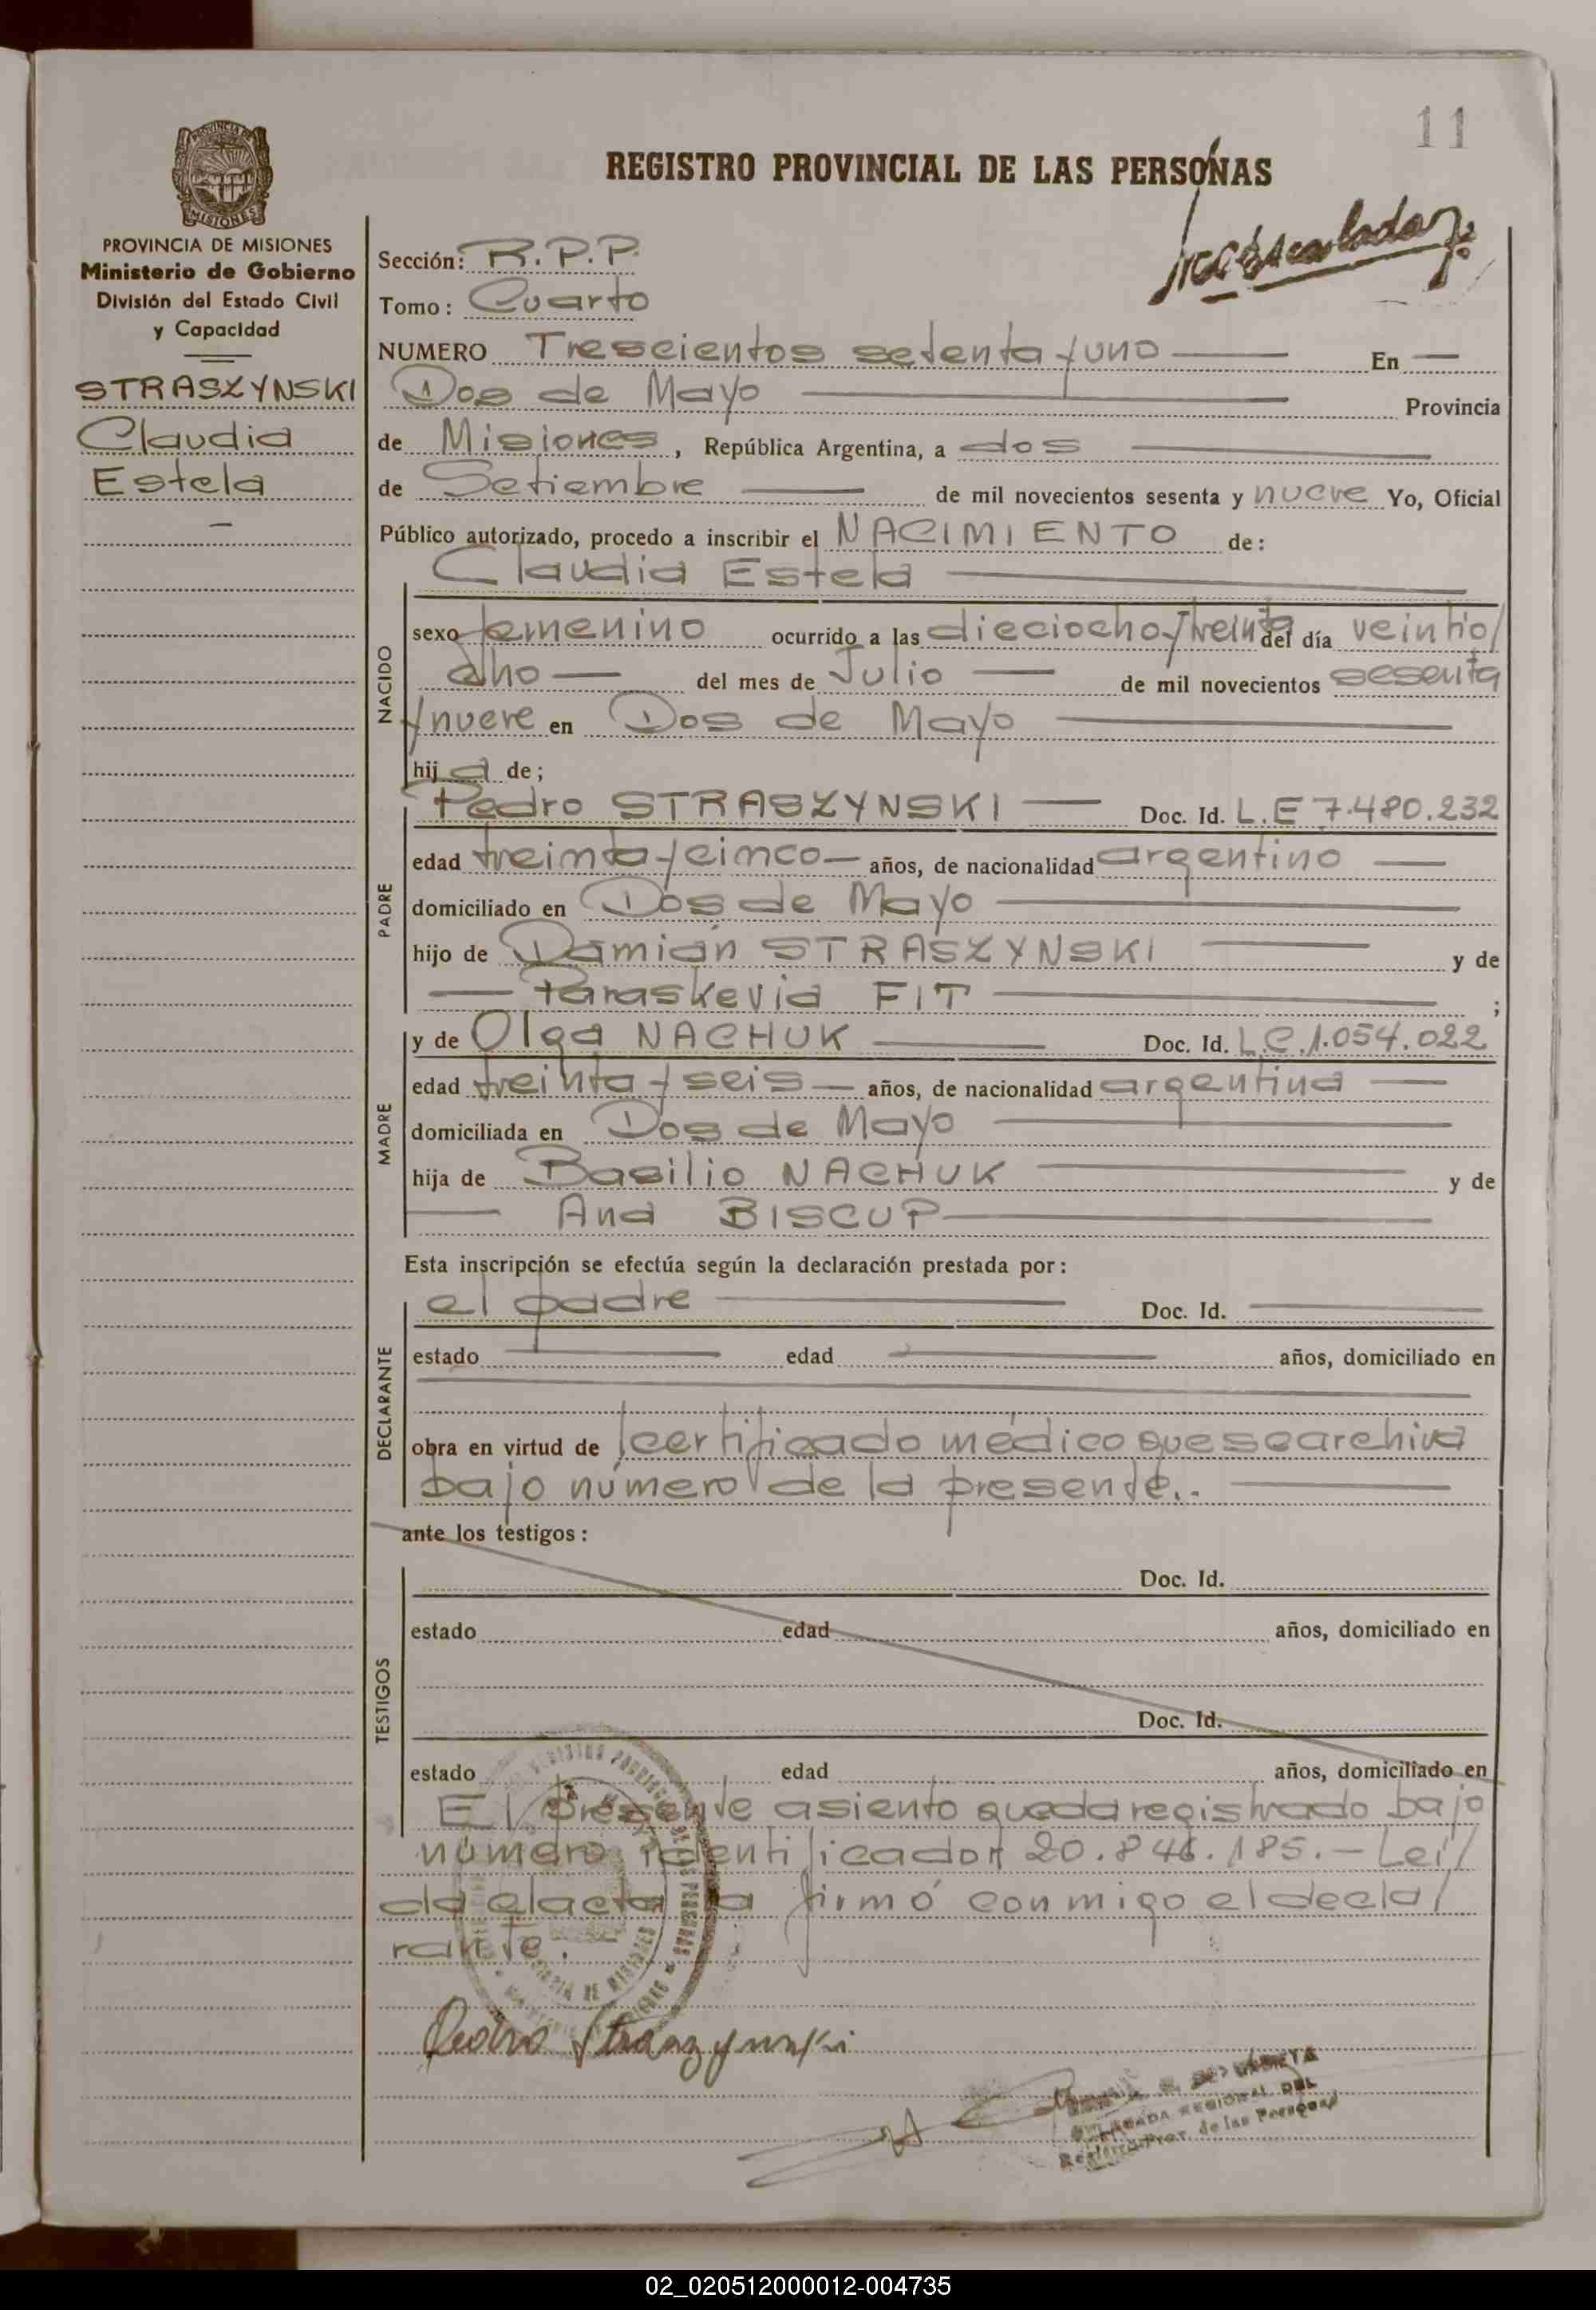 11
REGISTRO PROVINCIAL DE LAS PERSONAS
PROVINCIA DE MISIONES
Ministerio de Gobierno
División del Estado Civil
y Capacidad
STRASZYNSKI
Claudia
Estela
Sección: R.P.P.
Tomo: Cuarto
NUMERO Trescientos setenta y uno En
Dos de Mayo Provincia
de Misiones, República Argentina, a dos
de Setiembre de mil novecientos sesenta y nueve Yo, Oficial
Público autorizado, procedo a inscribir el NACIMIENTO de:
Claudia Estela
NACIDO
sexo femenino ocurrido a las dieciocho y treinta del día veintio/
cho del mes de Julio de mil novecientos sesenta
y nueve en Dos de Mayo
hij a de;
PADRE
Pedro STRASZYNSKI Doc. Id. L.E 7.480.232
edad treinta y cinco años, de nacionalidad argentino
domiciliado en Dos de Mayo
hijo de Damián STRASZYNSKI y de
Paraskevia FIT ;
MADRE
y de Olga NACHUK Doc. Id. L.C.1.054.022
edad treinta y seis años, de nacionalidad argentina
domiciliada en Dos de Mayo
hija de Basilio NACHUK y de
Ana BISCUP
Esta inscripción se efectúa según la declaración prestada por:
DECLARANTE
el padre Doc. Id.
estado edad años, domiciliado en
obra en virtud de certificado médico que se archiva
bajo número de la presente..
ante los testigos:
TESTIGOS
Doc. Id.
estado edad años, domiciliado en
Doc. Id.
estado edad años, domiciliado en
El presente asiento queda registrado bajo
número identificador 20.846.185.- Leí/
da el acta la firmó conmigo el decla/
rante.
Pedro Straszynski
REGIONAL DEL
de las Personas
02_020512000012-004735